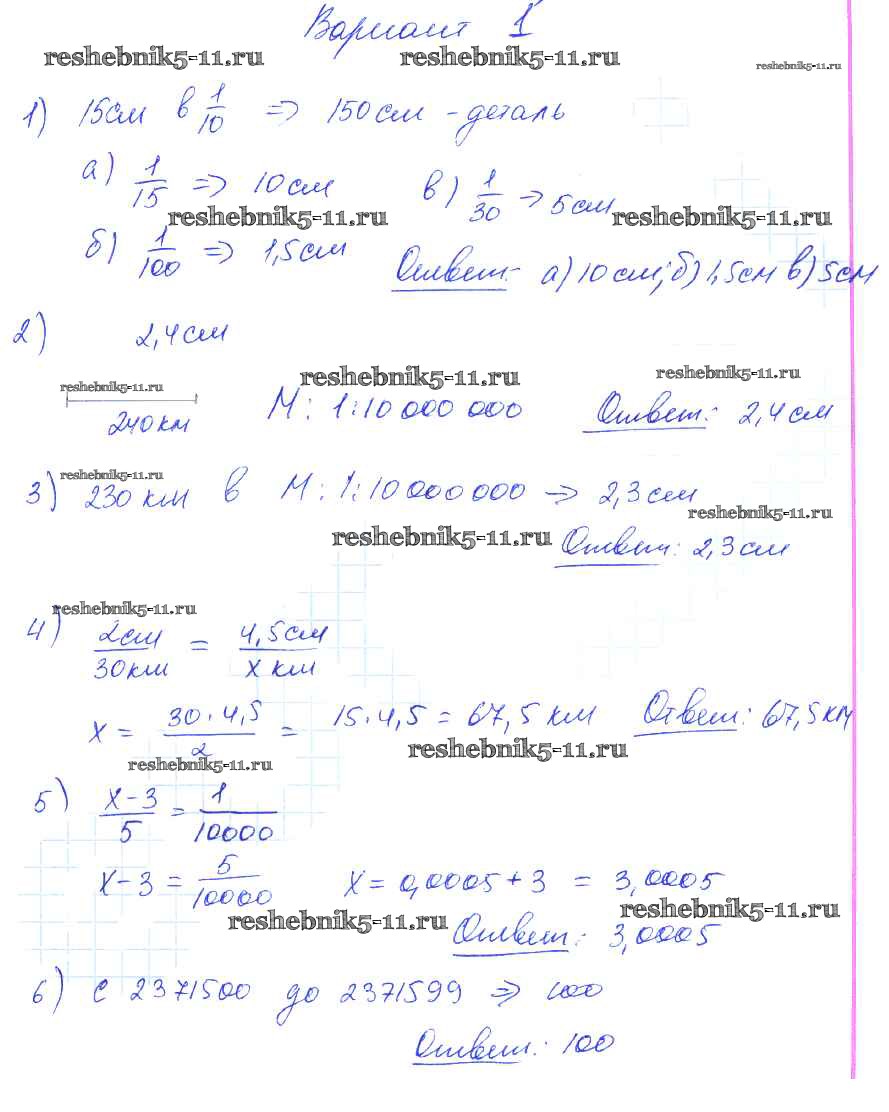 Вариант 1
reshebnik5-11.ru reshebnik5-11.ru reshebnik5-11.ru
1) 15см в 1/10 => 150см - деталь
а) 1/15 => 10см в) 1/30 -> 5см
reshebnik5-11.ru reshebnik5-11.ru
б) 1/100 => 1,5см Ответ: а) 10см; б) 1,5см в) 5см
2) 2,4см
reshebnik5-11.ru reshebnik5-11.ru reshebnik5-11.ru
240км М: 1:10 000 000 Ответ: 2,4см
reshebnik5-11.ru
3) 230 км в М: 1:10 000 000 => 2,3см
reshebnik5-11.ru
reshebnik5-11.ru Ответ: 2,3см
reshebnik5-11.ru
4) 2см/30км = 4,5см/x км
x = 30·4,5/2 = 15·4,5 = 67,5 км Ответ: 67,5км
reshebnik5-11.ru
reshebnik5-11.ru
5) x-3/5 = 1/10000
x-3 = 5/10000 x = 0,0005+3 = 3,0005
reshebnik5-11.ru reshebnik5-11.ru
Ответ: 3,0005
6) с 2371500 до 2371599 => 100
Ответ: 100